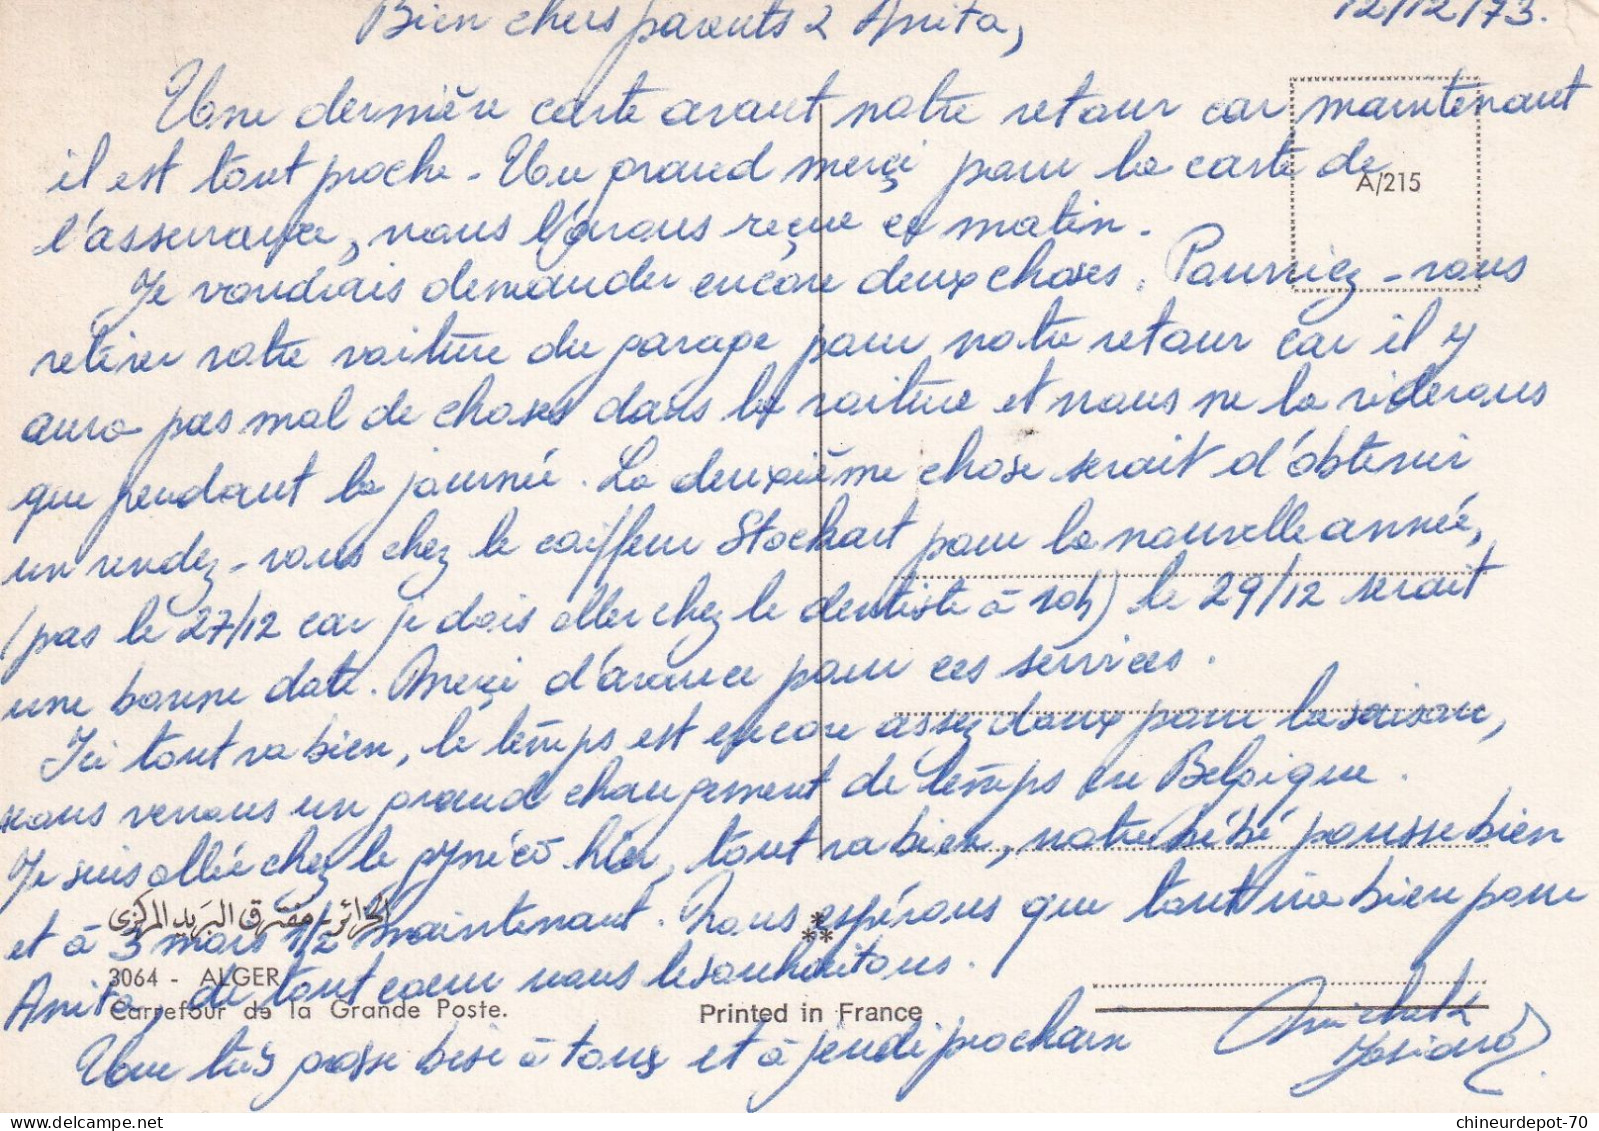 Bien chers parents & Anita,
12/12/73.
Une dernière carte avant notre retour car maintenant
il est tout proche. Un grand merci pour la carte de
A/215
l'assurance, nous l'avons reçue ce matin.
Je voudrais demander encore deux choses. Pourriez-vous
retirer votre voiture du garage pour notre retour car il y
aura pas mal de choses dans la voiture et nous ne la viderons
que pendant la journée. La deuxième chose serait d'obtenir
un rendez-vous chez le coiffeur Stockart pour la nouvelle année,
(pas le 27/12 car je dois aller chez le dentiste à 10h) le 29/12 serait
une bonne date. Merci d'avance pour ces services.
Ici tout va bien, le temps est encore assez doux pour la saison,
nous verrons un grand changement de temps en Belgique.
Je suis allée chez le gynéco hier, tout va bien, notre bébé pousse bien
et à 3 mois 1/2 maintenant. Nous espérons que tout ira bien pour
الجزائر - مفترق البريد المركزي
3064 - ALGER
Anita, de tout coeur nous le souhaitons.
Carrefour de la Grande Poste.
Printed in France
Une très grosse bise à tous et à jeudi prochain
Josiane
chineurdepot-70